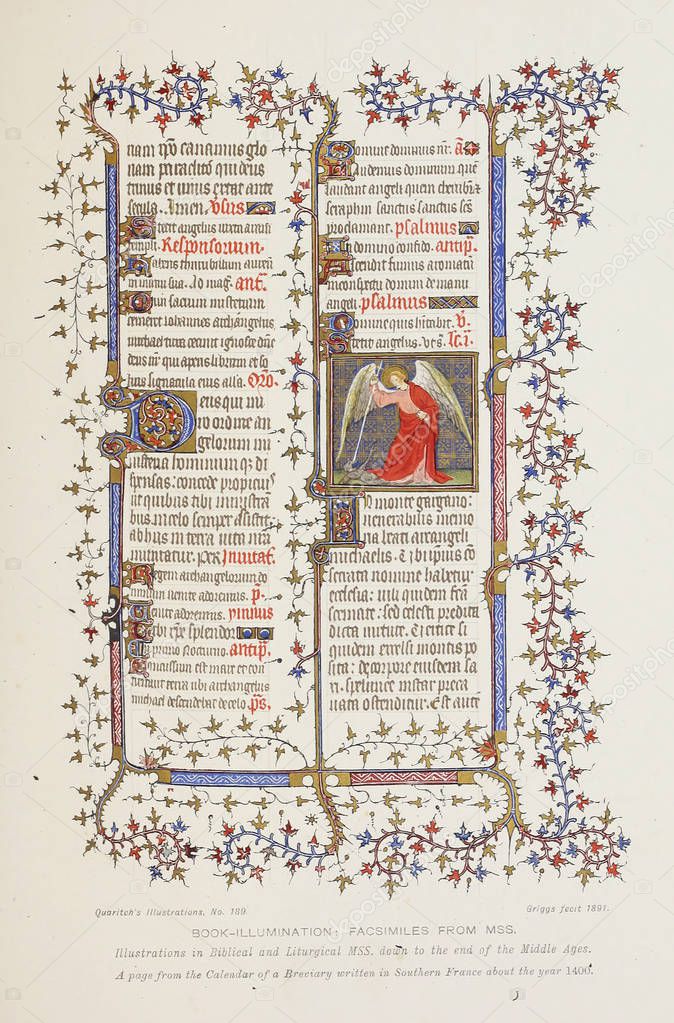 nam xpo canamus glo
riam peraclito qui deus
trinus et unus extat ante
secula. Amen. Vsus
Stetit angelus iuxta aram
templi. Responsorum.
Datens thuribulum aureum
in manu sua. Ad mag. ant.
Dum sacrum misterium
cerneret Iohannes archangelus
michael tuba cecinit ignosce dne
deus nr qui aperis librum et sol
uis signacula eius alla. Oro.
Deus qui mi
ro ordine an
gelorum mi
nisteria hominumque di
spensas: concede propicius
ut quibus tibi ministran
bus in celo semper assistit:
ab hiis in terra uita nra
muniatur. Per. Inuitat.
Regem archangelorum do
minum uenite adoremus. p.
Uenite adoremus. ymnus
Tibi xpe splendor
In primo nocturno. antip.
Concussum est mare et con
tremuit terra ubi archangelus
michael descendebat de celo. ps.
Domine dominus nr. a
Laudemus dominum que
laudant angeli quem cherubin et
seraphin sanctus sanctus scs
proclamant. psalmus
In domino confido. antip.
Ascendit fumus aromatum
in conspectu domini de manu
angeli. psalmus
Domine quis habitabit. V.
Stetit angelus. Vers. Lc. i.
In monte gargano:
uenerabilis memo
ria beati arcangeli
michaelis. Et ibi ipsius co
secrata nomine habetur
ecclesia: uili quidem fra
scemate: sed celesti predita
dicta uirtute. Et uertice si
quidem excelsi montis po
sita: de corpore eiusdem sa
xi. spelunce instar preca
uata ostenditur. Est autem
Quaritch's Illustrations, No. 189
Griggs fecit 1891.
BOOK-ILLUMINATION; FACSIMILES FROM MSS.
Illustrations in Biblical and Liturgical MSS. down to the end of the Middle Ages.
A page from the Calendar of a Breviary written in Southern France about the year 1400.